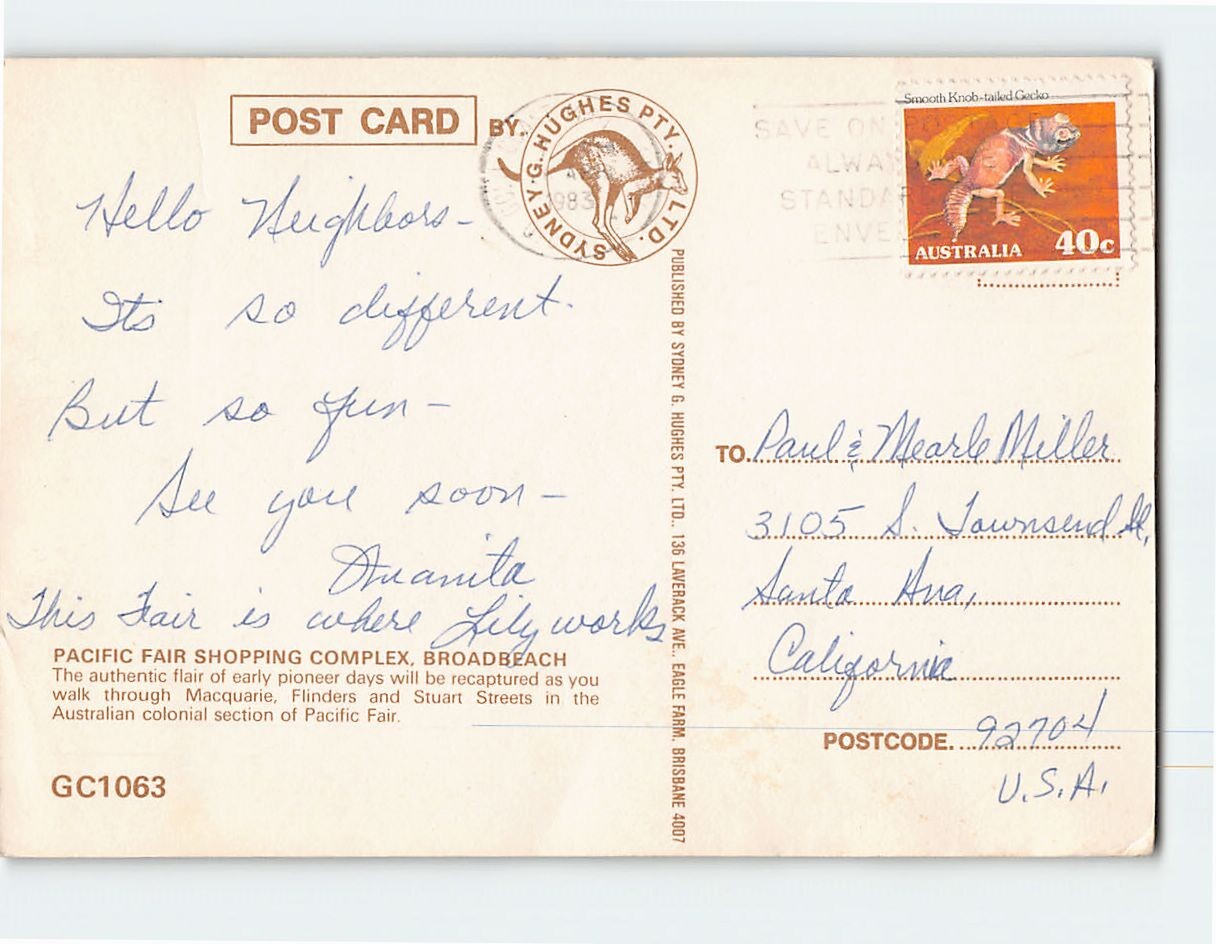 POST CARD BY.
SYDNEY G. HUGHES PTY. LTD.
1983
SAVE ON POSTAGE
ALWA
STANDA
ENVE
Smooth Knob-tailed Gecko
AUSTRALIA 40c
Hello Neighbors-
Its so different.
But so fun-
See you soon-
Juanita
This Fair is where Lily works
PACIFIC FAIR SHOPPING COMPLEX, BROADBEACH
The authentic flair of early pioneer days will be recaptured as you
walk through Macquarie, Flinders and Stuart Streets in the
Australian colonial section of Pacific Fair.
GC1063
PUBLISHED BY SYDNEY G. HUGHES PTY. LTD., 136 LAVERACK AVE., EAGLE FARM. BRISBANE 4007
TO. Paul & Mearle Miller
3105 S. Townsend St,
Santa Ana,
California
POSTCODE. 92704
U.S.A.